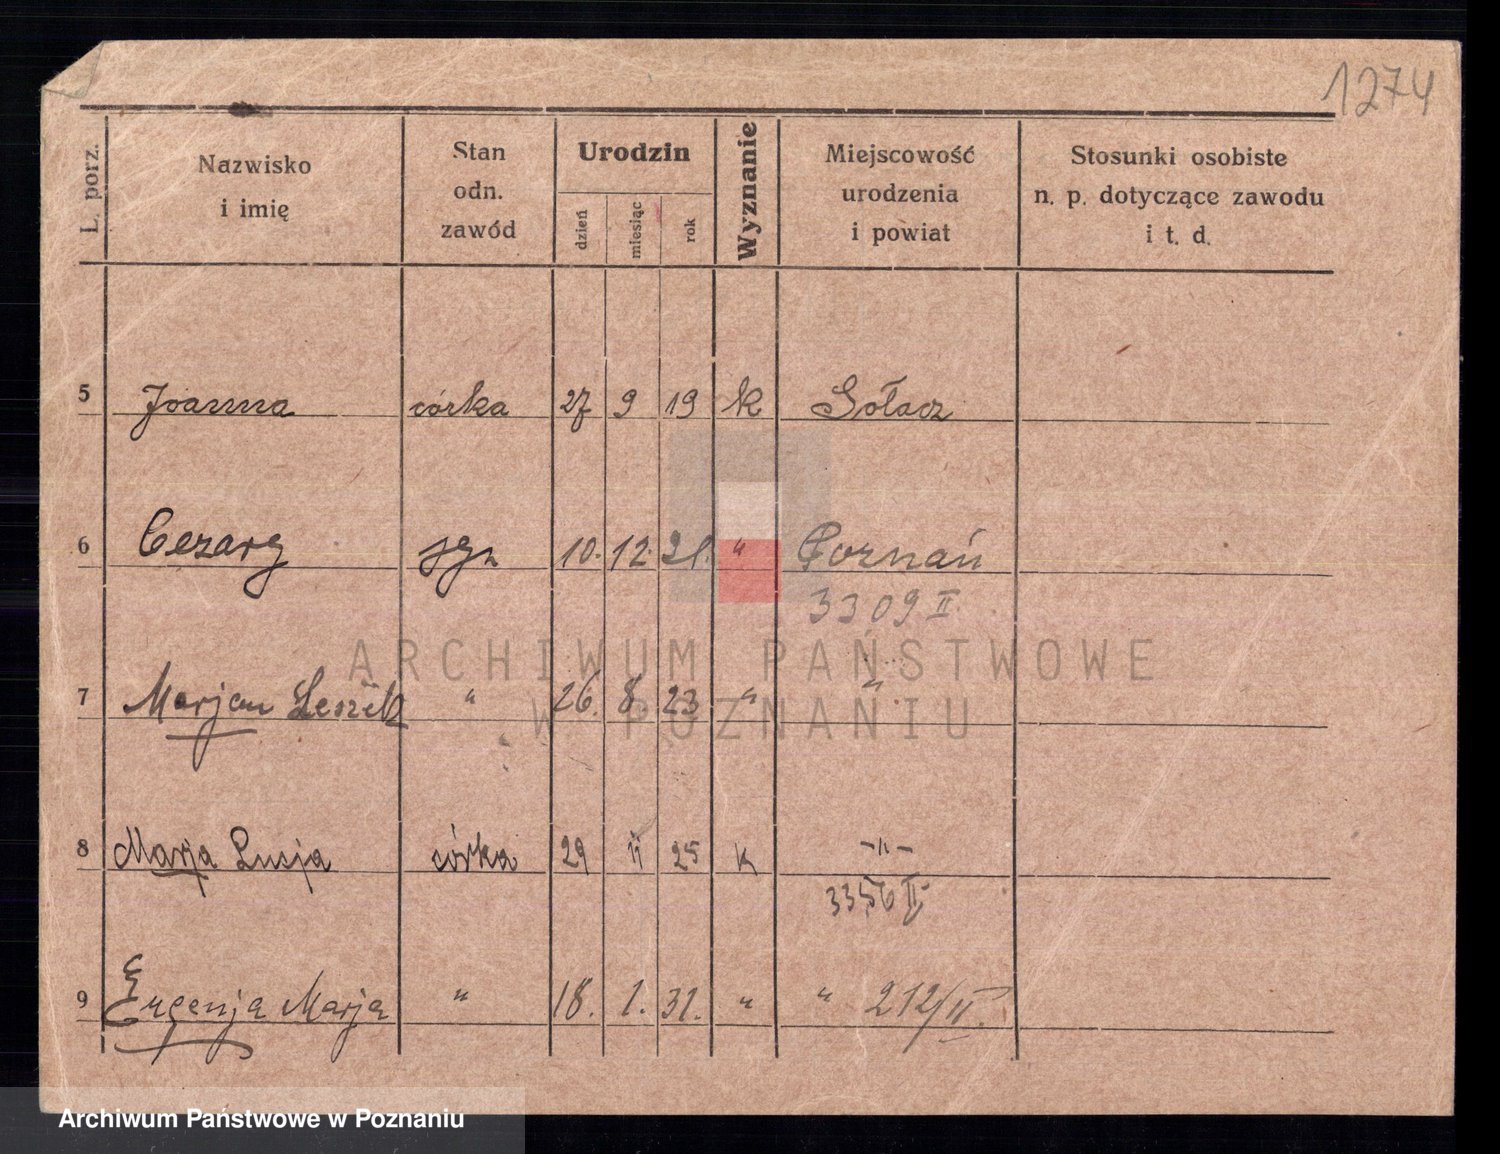 1274
L. porz.
Nazwisko
i imię
Stan
odn.
zawód
Urodzin
dzień
miesiąc
rok
Wyznanie
Miejscowość
urodzenia
i powiat
Stosunki osobiste
n. p. dotyczące zawodu
i t. d.
5 Joanna córka 27 9 19 k Gołacz
6 Cezary syn 10. 12. 21. " Poznań
3309 II
7 Marjan Leszek " 26. 8. 23 " "
8 Marja Lucja córka 29 11 25 K -"-
3356 II
9 Eugenja Marja " 18. 1. 31. " " 212/II.
ARCHIWUM PAŃSTWOWE
W POZNANIU
Archiwum Państwowe w Poznaniu